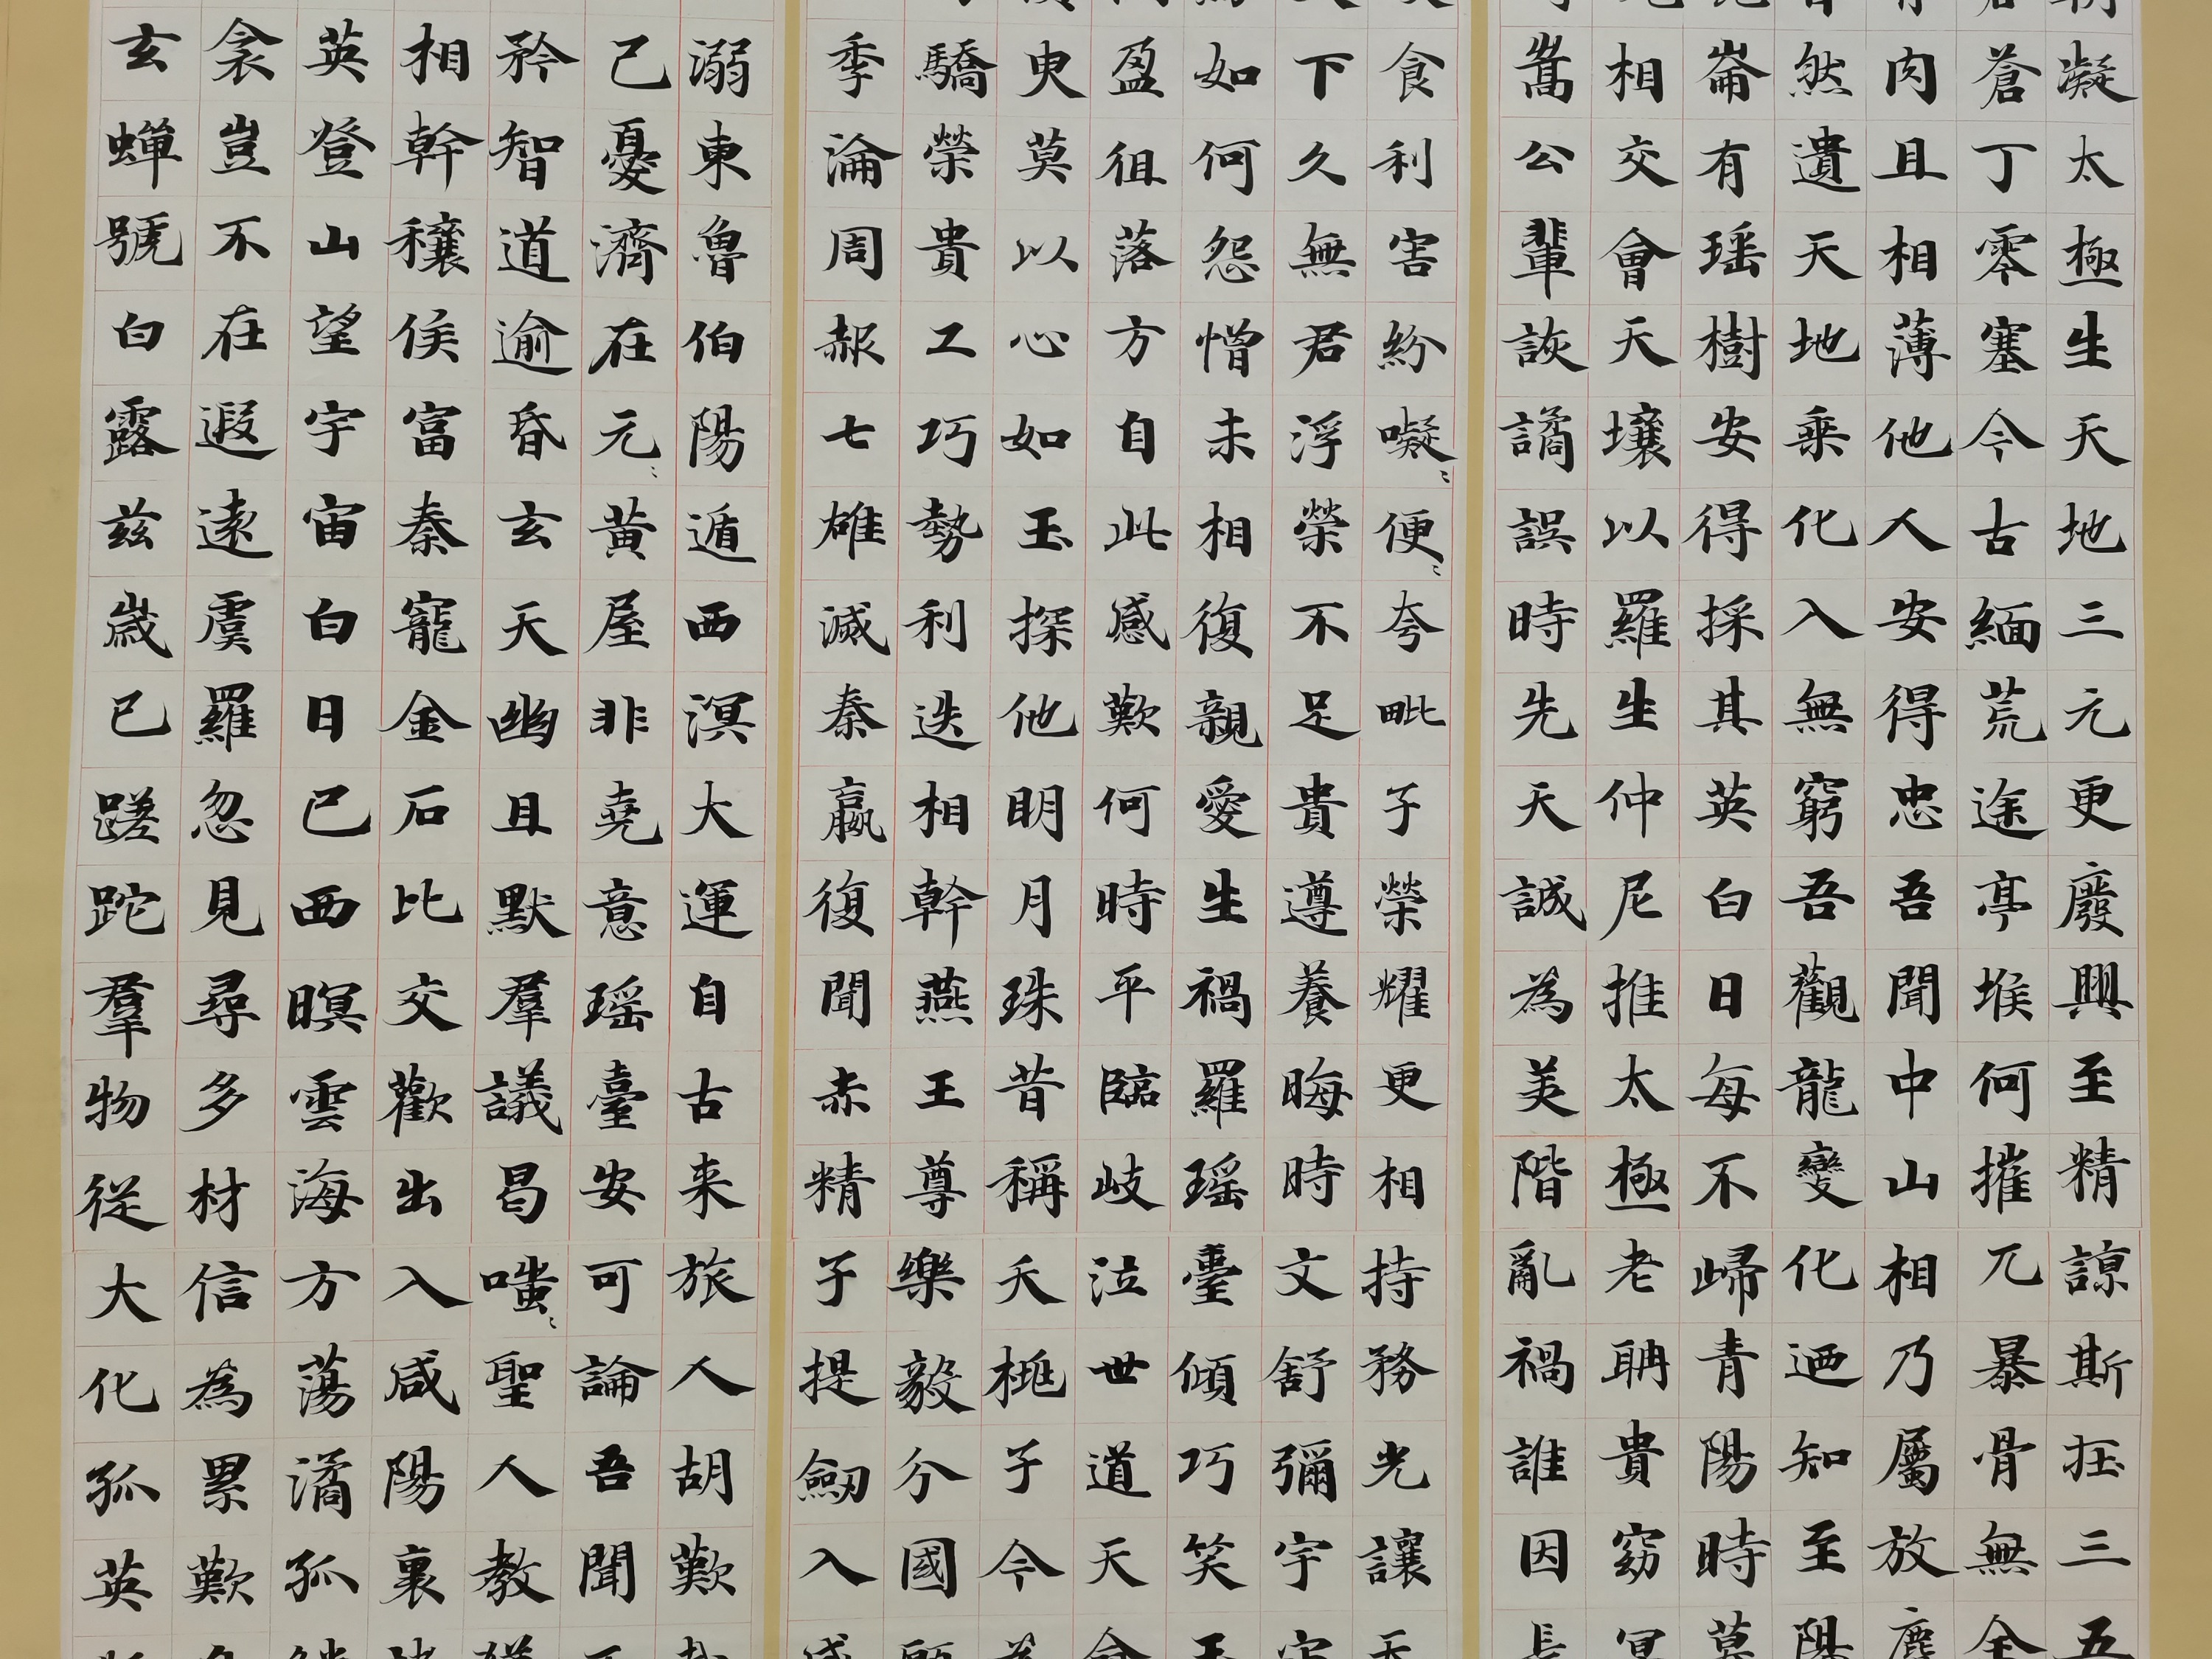 凝太極生天地三元更廢興至精諒斯在三五
蒼丁零塞今古緬荒途亭堠何摧兀暴骨無全
肉且相薄他人安得忠吾聞中山相乃屬放
然遺天地乘化入無窮吾觀龍變化迺知至陽
崙有瑶樹安得採其英白日每不歸青陽時
相交會天壤以羅生仲尼推太極老聃貴窈
嵩公輩詼譎誤時先天誠為美階亂禍誰因
食利害紛㘈〻便〻夸毗子榮耀更相持務光讓
下久無君浮榮不足貴遵養晦時文舒彌宇
如何怨憎未相復親愛生禍羅瑶臺傾巧笑
盈徂落方自此感歎何時平臨岐泣世道天
臾莫以心如玉探他明月珠昔稱夭桃子今
驕榮貴工巧勢利迭相幹燕王尊樂毅分國
季淪周赧七雄滅秦嬴復聞赤精子提劒入
溺東魯伯陽遁西溟大運自古来旅人胡歎
己憂濟在元〻黃屋非堯意瑶臺安可論吾聞
矜智道逾昏玄天幽且默羣議曷嗤〻聖人教
相幹穰侯富秦寵金石比交歡出入咸陽裏
英登山望宇宙白日已西暝雲海方蕩潏孤
衾豈不在遐遠虞羅忽見尋多材信為累歎
玄蟬號白露兹歲已蹉跎羣物從大化孤英